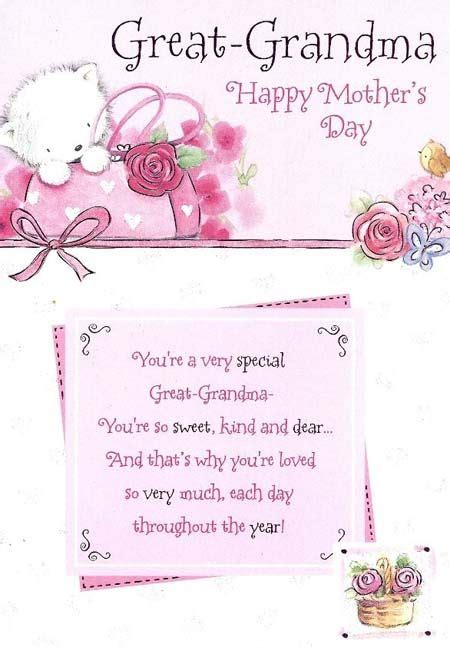 Great-Grandma
Happy Mother's
Day
You're a very special
Great-Grandma-
You're so sweet, kind and dear...
And that's why you're loved
so very much, each day
throughout the year!